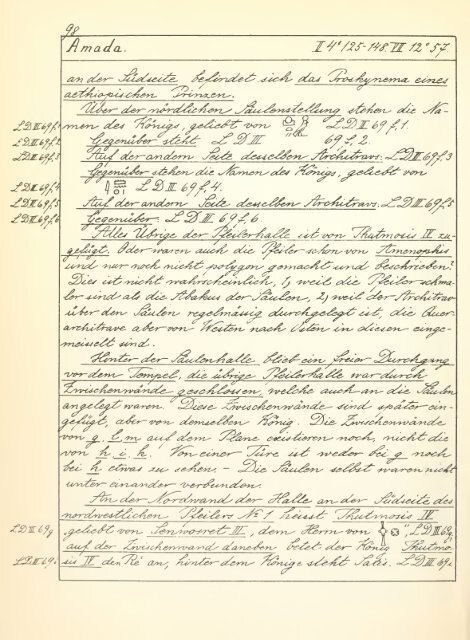 98
Amada. II 4° 125-148 VII 12° 57
an der Südseite befindet sich das Proskynema eines
aethiopischen Prinzen.
Über der nördlichen Säulenstellung stehen die Na-
LD III 69 f.1 men des Königs, geliebt von LD III 69 f. 1.
LD III 69 f.2 Gegenüber steht LD III 69 f. 2.
LD III 69 f.3 Auf der andern Seite desselben Architravs. LD III 69 f. 3
Gegenüber stehen die Namen des Königs, geliebt von
LD III 69 f.4 LD III 69 f. 4.
LD III 69 f.5 Auf der andern Seite desselben Architravs. LD III 69 f. 5
LD III 69 f.6 Gegenüber. LD III 69 f. 6.
Alles Übrige der Pfeilerhalle ist von Thutmosis IV zu-
gefügt. Oder waren auch die Pfeiler schon von Amenophis
und nur noch nicht polygon gemacht und beschrieben?
Dies ist nicht wahrscheinlich, 1, weil die Pfeiler schma-
ler sind als die Abakus der Säulen, 2, weil der Architrav
über den Säulen regelmässig durchgelegt ist, die Quer-
architrave aber von Westen nach Osten in diesen einge-
meisselt sind.
Hinter der Säulenhalle blieb ein freier Durchgang
vor dem Tempel, die übrige Pfeilerhalle war durch
Zwischenwände geschlossen, welche auch an die Säulen
angelegt waren. Diese Zwischenwände sind später ein-
gefügt, aber von demselben König. Die Zwischenwände
von g. l. m auf dem Plane existieren noch, nicht die
von h. i. k. Von einer Türe ist weder bei g noch
bei h etwas zu sehen. - Die Säulen selbst waren nicht
unter einander verbunden.
An der Nordwand der Halle an der Südseite des
nordwestlichen Pfeilers No 1 heisst Thutmosis IV
LD III 69g geliebt von Senwosret III, dem Herrn von LD III 69g,
auf der Zwischenwand daneben betet der König Thutmo-
LD III 69i sis IV den Re an, hinter dem Könige steht Satis. LD III 69i